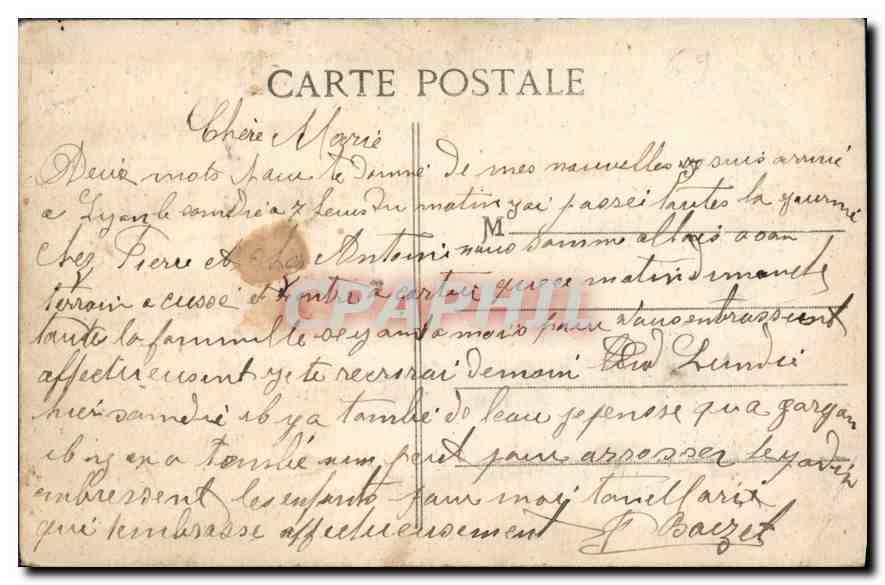 CARTE POSTALE
Chère Marie
Deux mots pour te donné de mes nouvelles je suis arrivé
a Lyon le samdie a 7 heures du matin j'ai passei toutes la journé
M
chez Pierre et chez Antoine nous somme allais a son
terrain a cusse et rentre a que ce matin dimanche
toute la fammille se yoint a mois pour vous enbrassent
affectueusent ye te recrirai demain Lundi
hier samdie il y a tombé de leau je pense qua
il ny en a tombé un peut pour arrosser le yardin
embressent les enfants pour moi ton Marie
qui tembrasse affectueusement Boizet
CPAPHIL